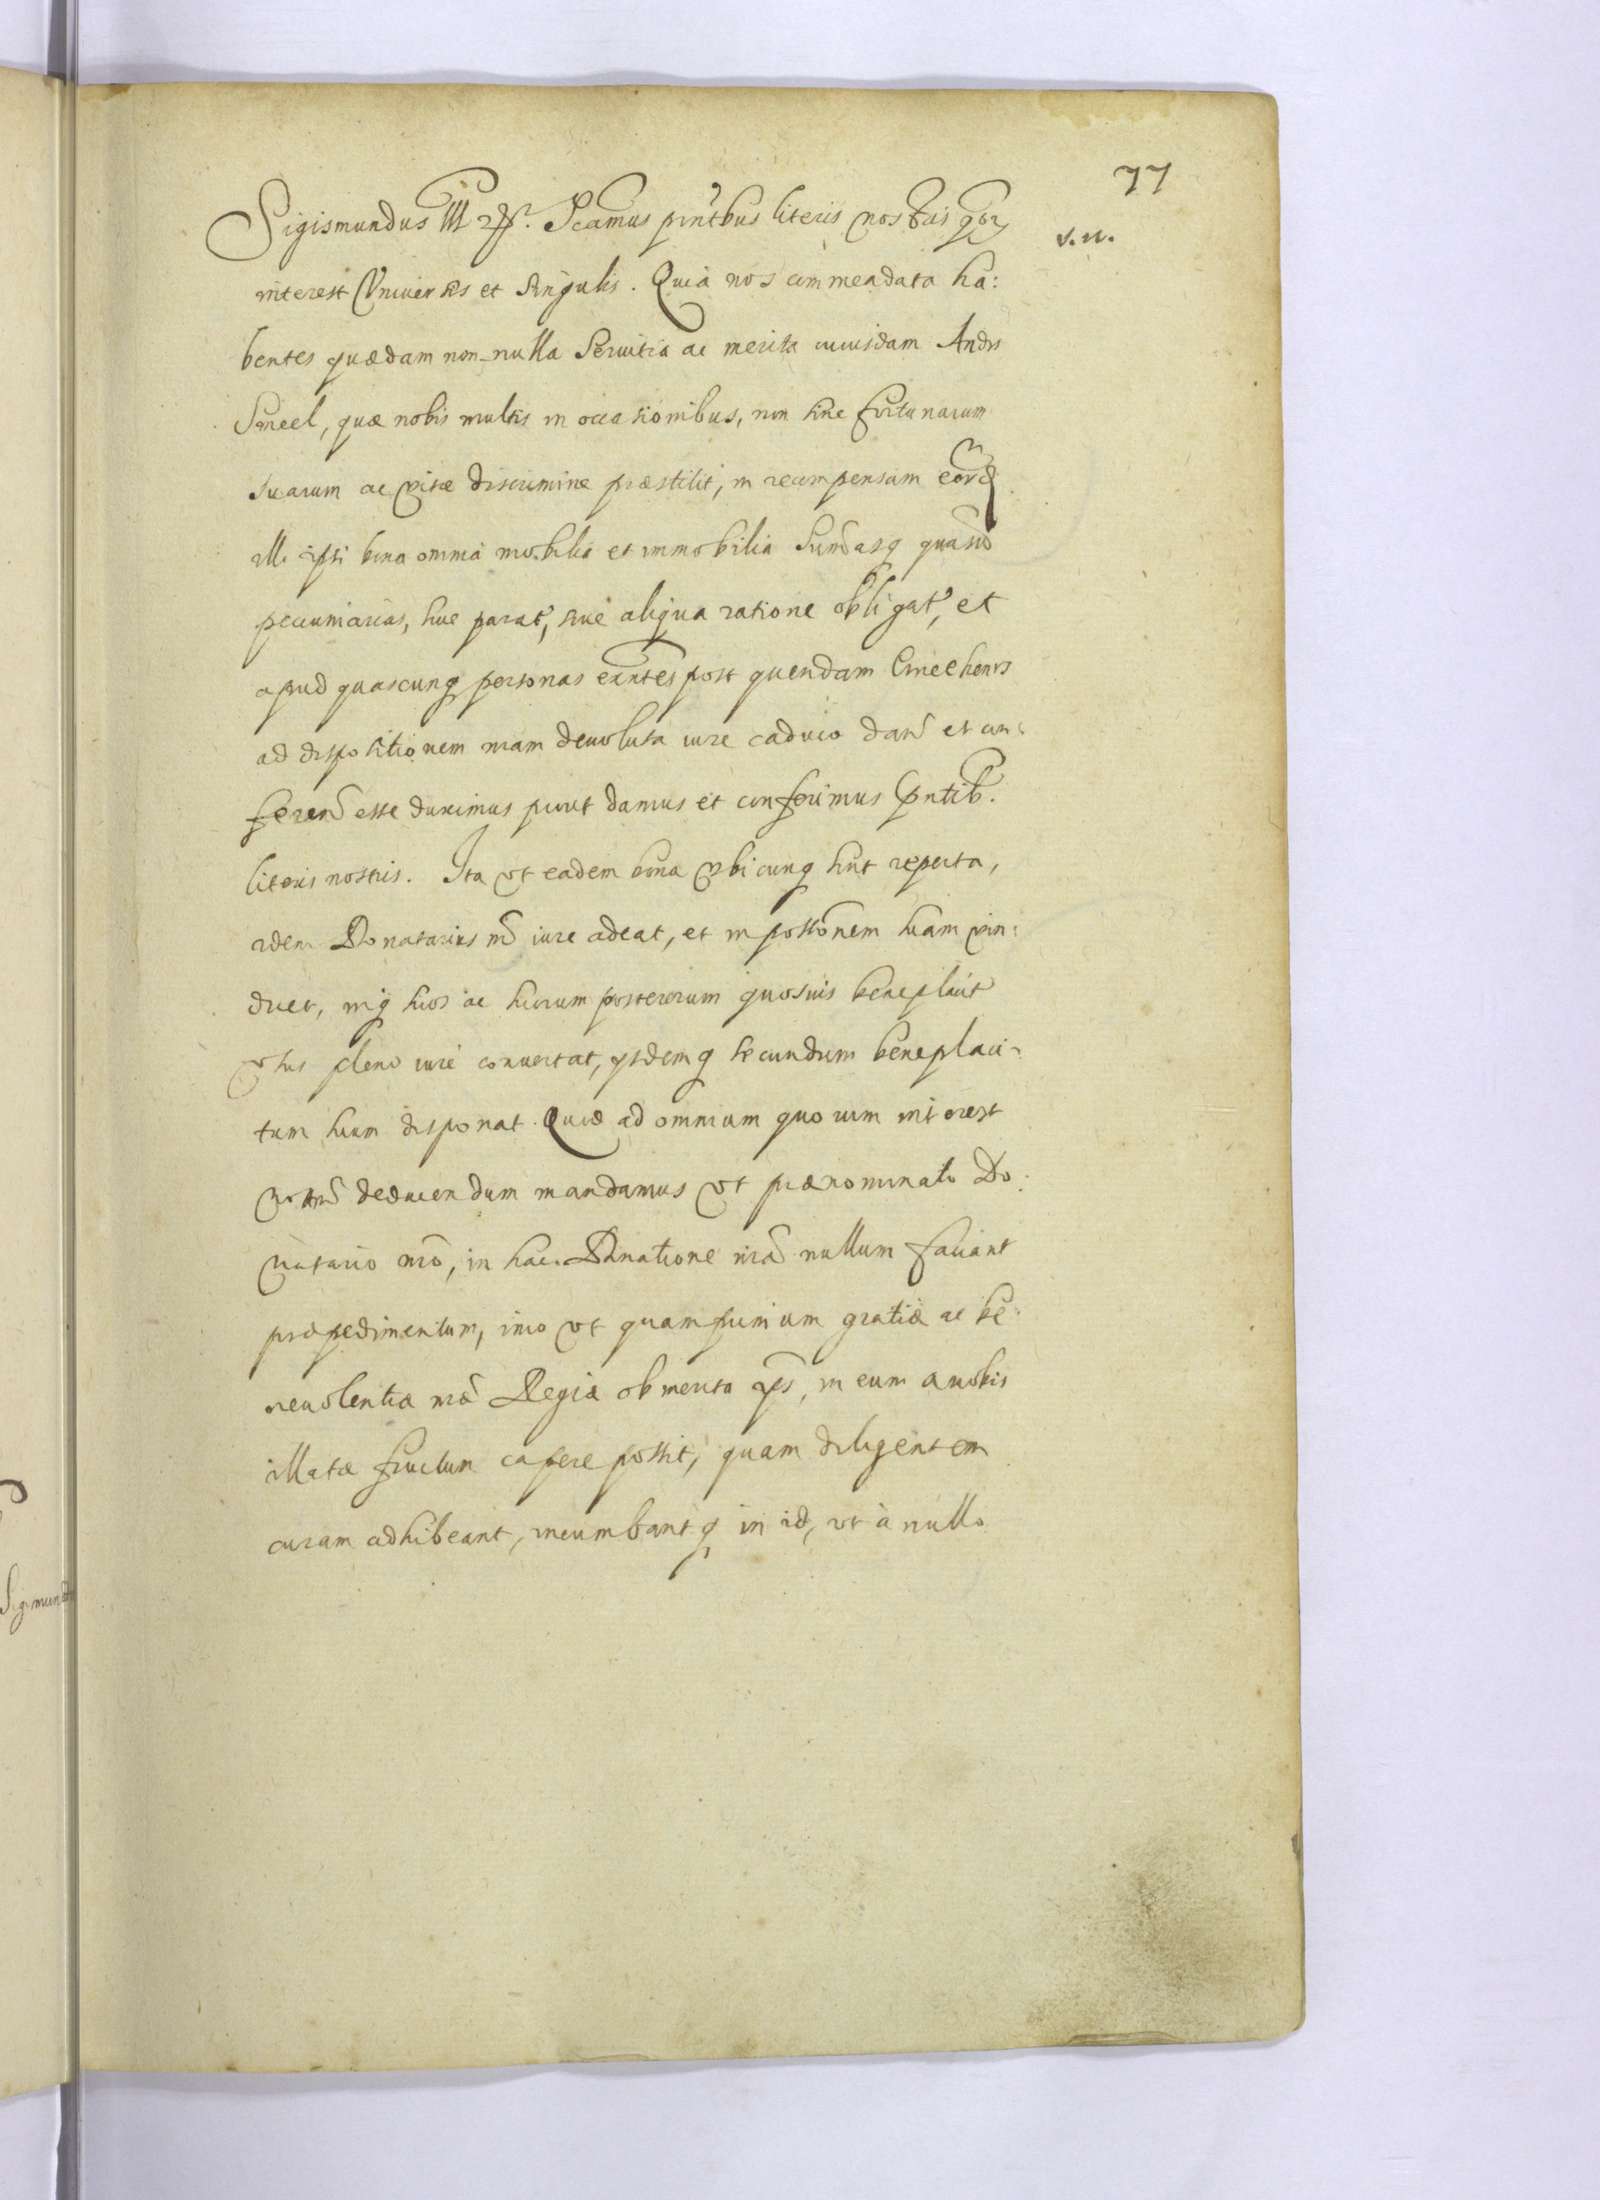 77
Sigismundus III etc. Scamus pñtbus literis nostris quor
v. n.
interest Vniuersis et singulis. Quia nos commendata ha:
bentes quædam non-nulla Seruitia ac merita cuiusdam Andrs
quæ nobis multis in occasionibus, non sine fortunarum
suarum ac vitæ discrimine præstitit, in recompensam eor̃d
illi ipsi bona omnia mobilia et immobilia Sum̃asq quasuis
pecuniarias, siue parat, siue aliqua ratione obligat, et
apud quascunq personas exñtes post quendam
ad dispositionem nr̃am deuoluta iure caduco dañ et con:
ferend̃ esse duximus prout damus et conferimus pñtib.
literis nostris. Ita vt eadem bona vbicunq sint reperta,
idem Donatarius nr̃ iure adeat, et in possõnem suam vin:
dicet, inq suos ac suorum posterorum quosuis beneplacit
vsus pleno iure conuertat, ysdemq secundum beneplaci:
tum suum disponat. Quod ad omnium quorum interest
notitiã deducendum mandamus vt prænominato Do:
natario nr̃o, in hac Donatione nr̃a nullum faciant
præpedimentum, imo vt quamprimum gratiæ ac be:
neuolentiæ nr̃æ Regiæ ob merita ips, in eum a nobis
illatæ fructum capere possit, quam diligentem
curam adhibeant, incumbantq in id, vt à nullo